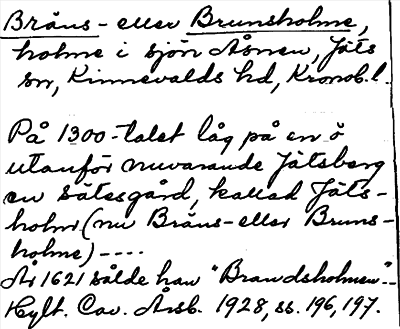 Bräns- eller Brunsholme,
holme i sjön Åsnen, Jäts
sn, Kinnevalds hd, Kronob.l.
På 1300-talet låg på en ö
utanför nuvarande Jätsberg
en sätesgård, kallad Jäts-
holm (nu Bräns- eller Bruns-
holme) ----
År 1621 sålde han "Brandsholmen"--
Hylt. Cav. Årsb. 1928, ss. 196, 197.